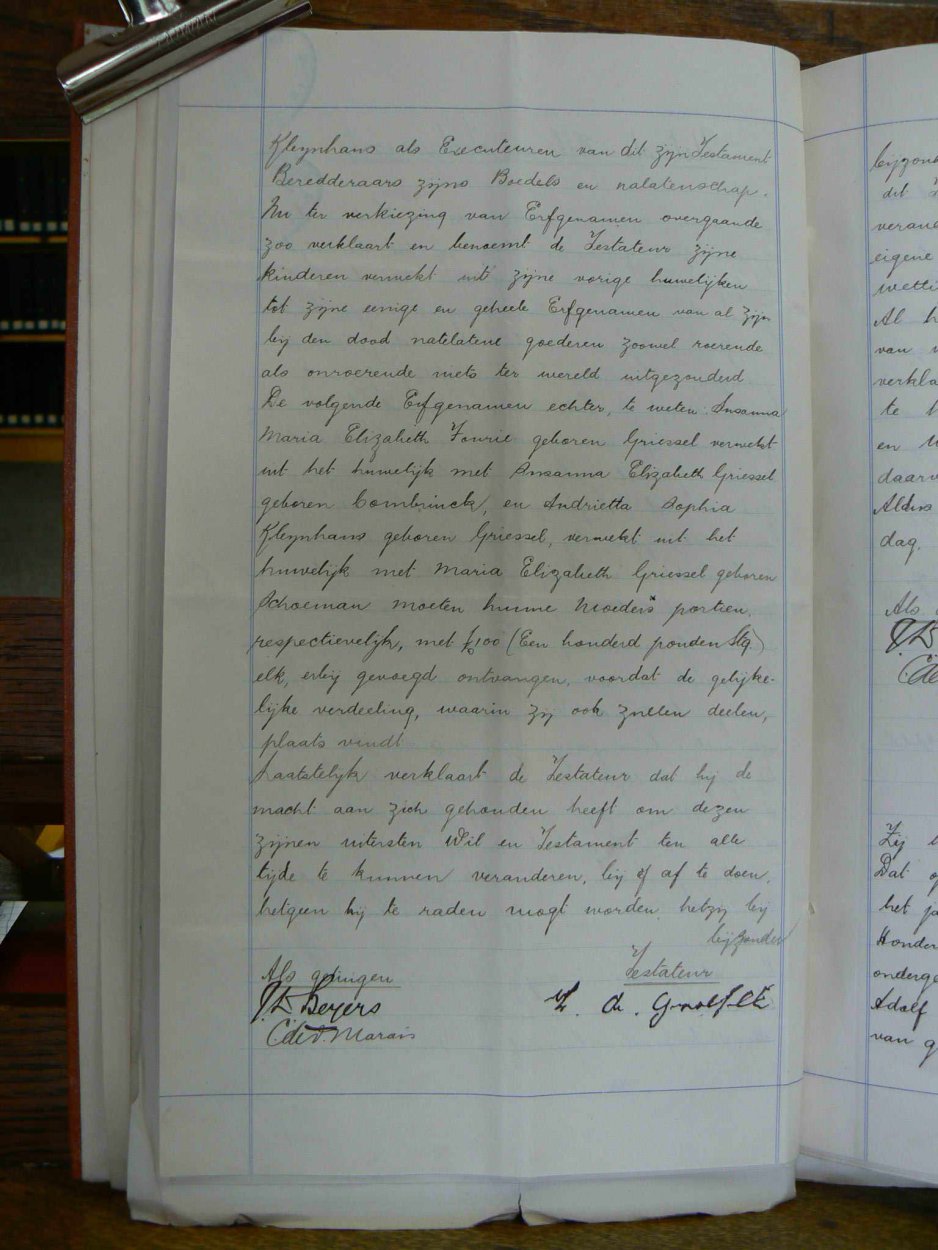 Kleynhans als Executeuren van dit zijn Testament
Beredderaars zijns Boedels en nalatenschap.
Nu ter verkiezing van Erfgenamen overgaande
zoo verklaart en benoemt de Testateur zijne
kinderen verwekt uit zijne vorige huwelijken
tot zijne eenige en geheele Erfgenamen van al zijn
bij den dood natelatene goederen zoowel roerende
als onroerende niets ter wereld uitgezonderd
De volgende Erfgenamen echter, te weten Susanna
Maria Elizabeth Fourie geboren Griessel verwekt
uit het huwelijk met Susanna Elizabeth Griessel
geboren Combrinck, en Andrietta Sophia
Kleynhans geboren Griessel, verwekt uit het
huwelijk met Maria Elizabeth Griessel geboren
Schoeman moeten hunne Moeders portien,
respectievelijk, met £100 (Een honderd ponden Stg)
elk, erbij gevoegd ontvangen, voordat de gelijke-
lijke verdeeling, waarin zij ook zullen deelen,
plaats vindt
Laatstelijk verklaart de Testateur dat hij de
macht aan zich gehouden heeft om dezen
zijnen uitersten Wil en Testament ten alle
tijde te kunnen veranderen, bij of af te doen,
hetgeen hij te raden mogt worden, hetzij bij
bijzonder
Als getuigen
Testateur
Beyers
C de V. Marais
dit
eigene
wetti
Al h
van
verkla
te
en
daarv
Aldus
dag.
Als
Zij
Dat
het ja
Honder
onderge
Adolf
van g